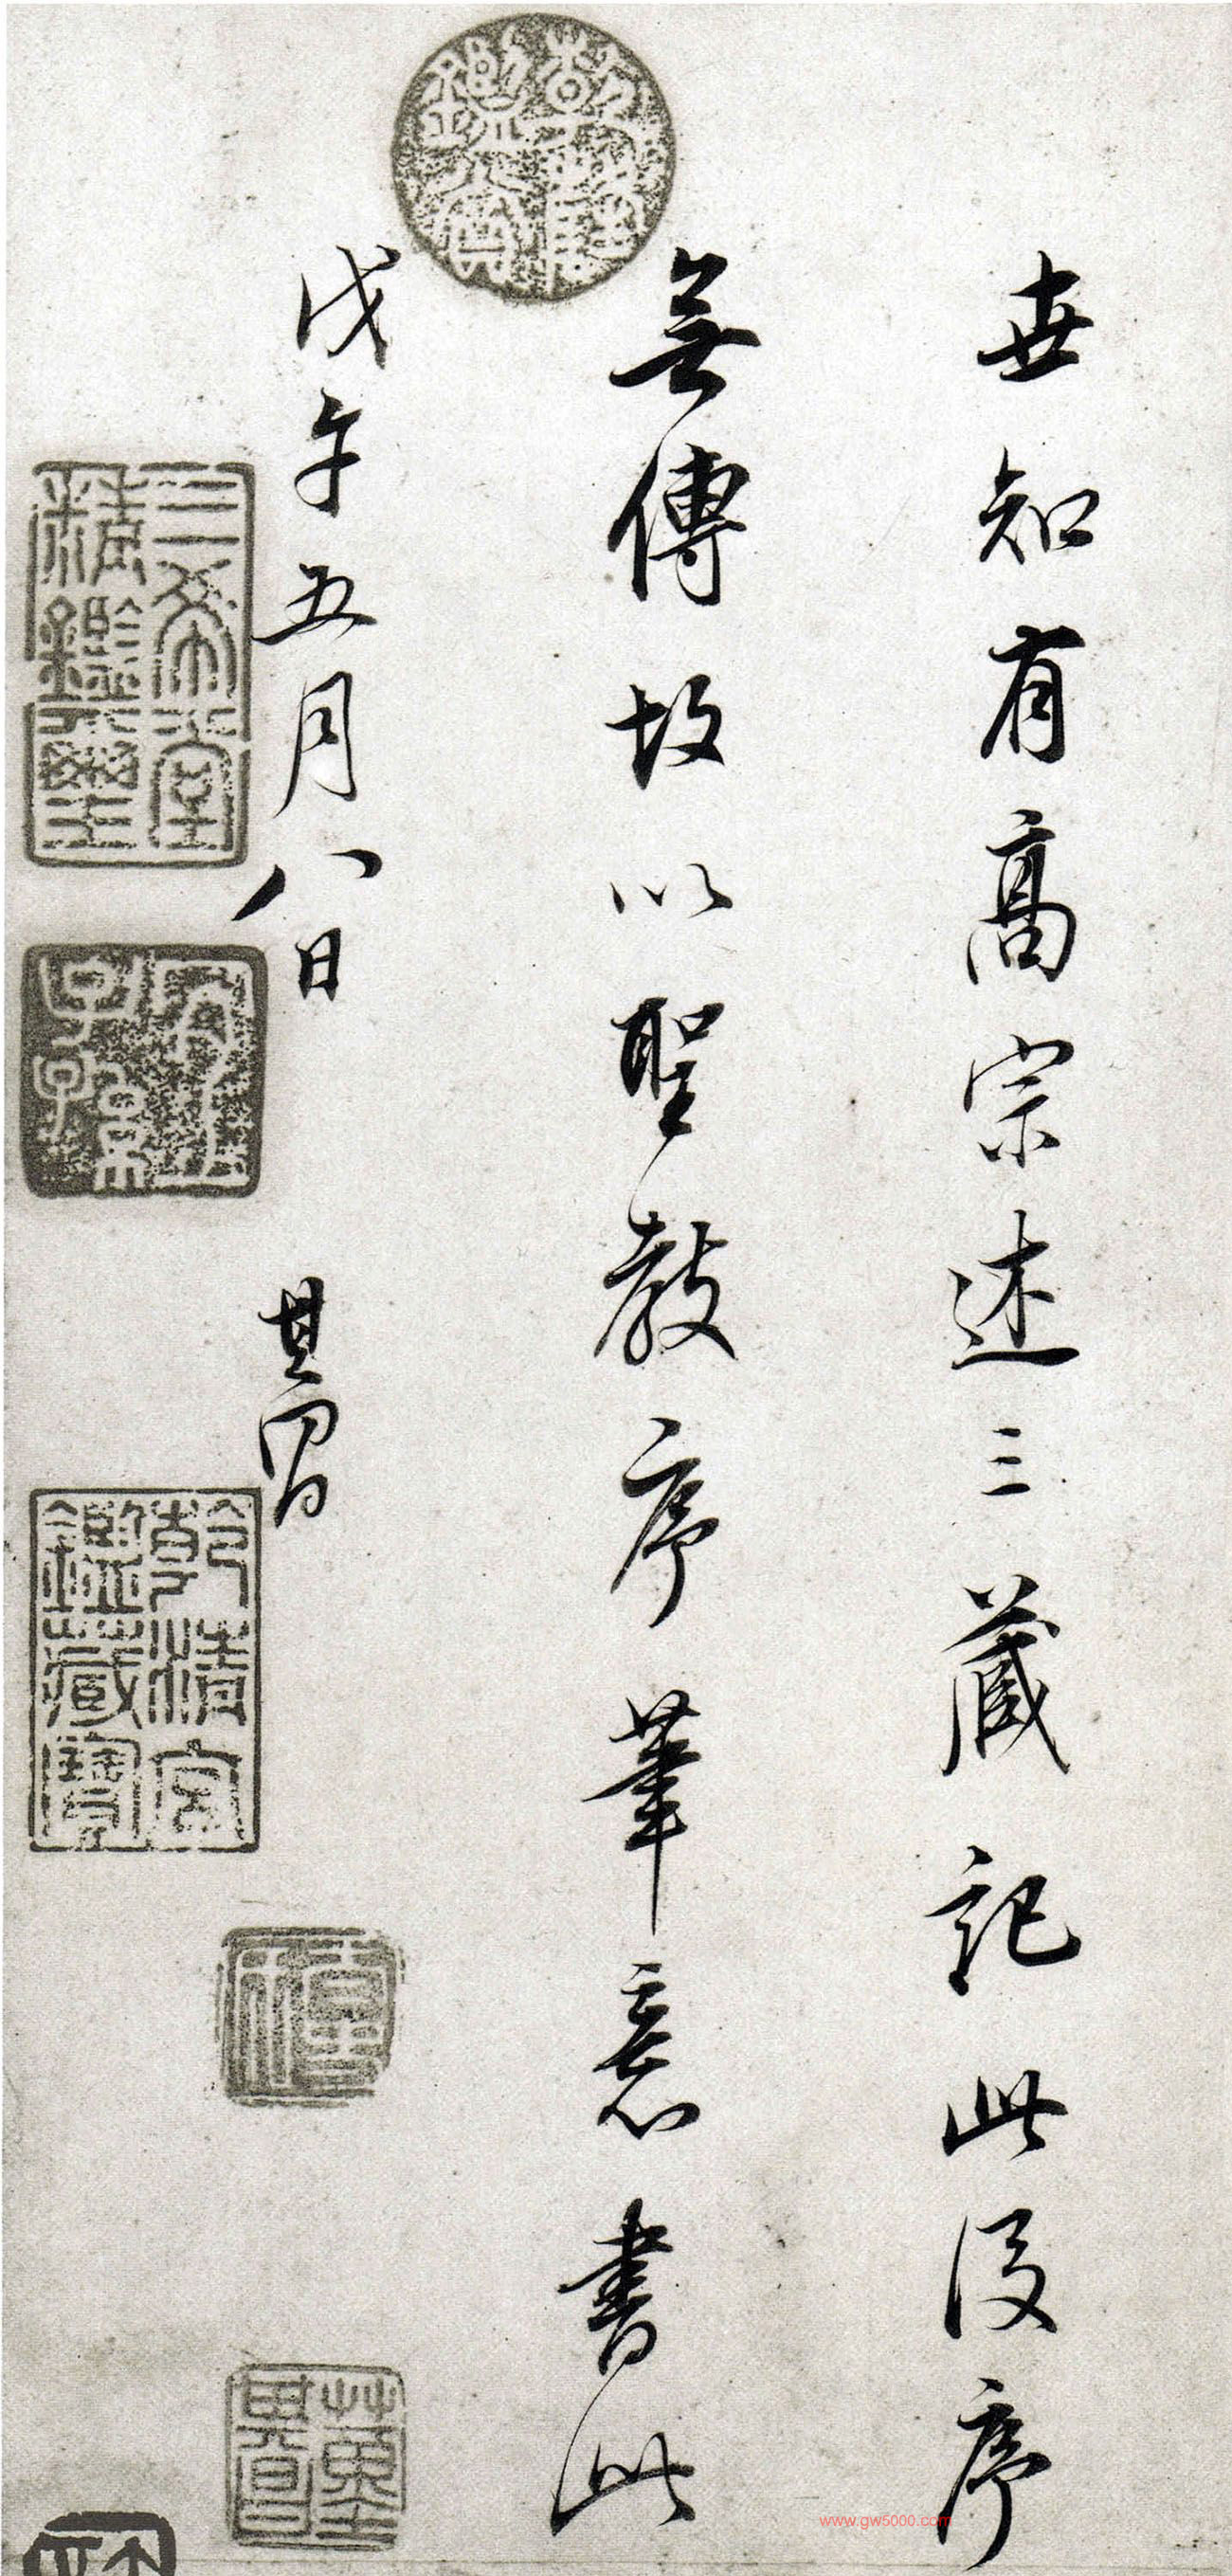 世知有高宗述三藏記此後序
無傳故以聖教序筆意書此
戊午五月八日
其昌
三希堂精鑑璽
宜子孫
乾清宮鑑藏寶
董其昌
www.gw5000.com